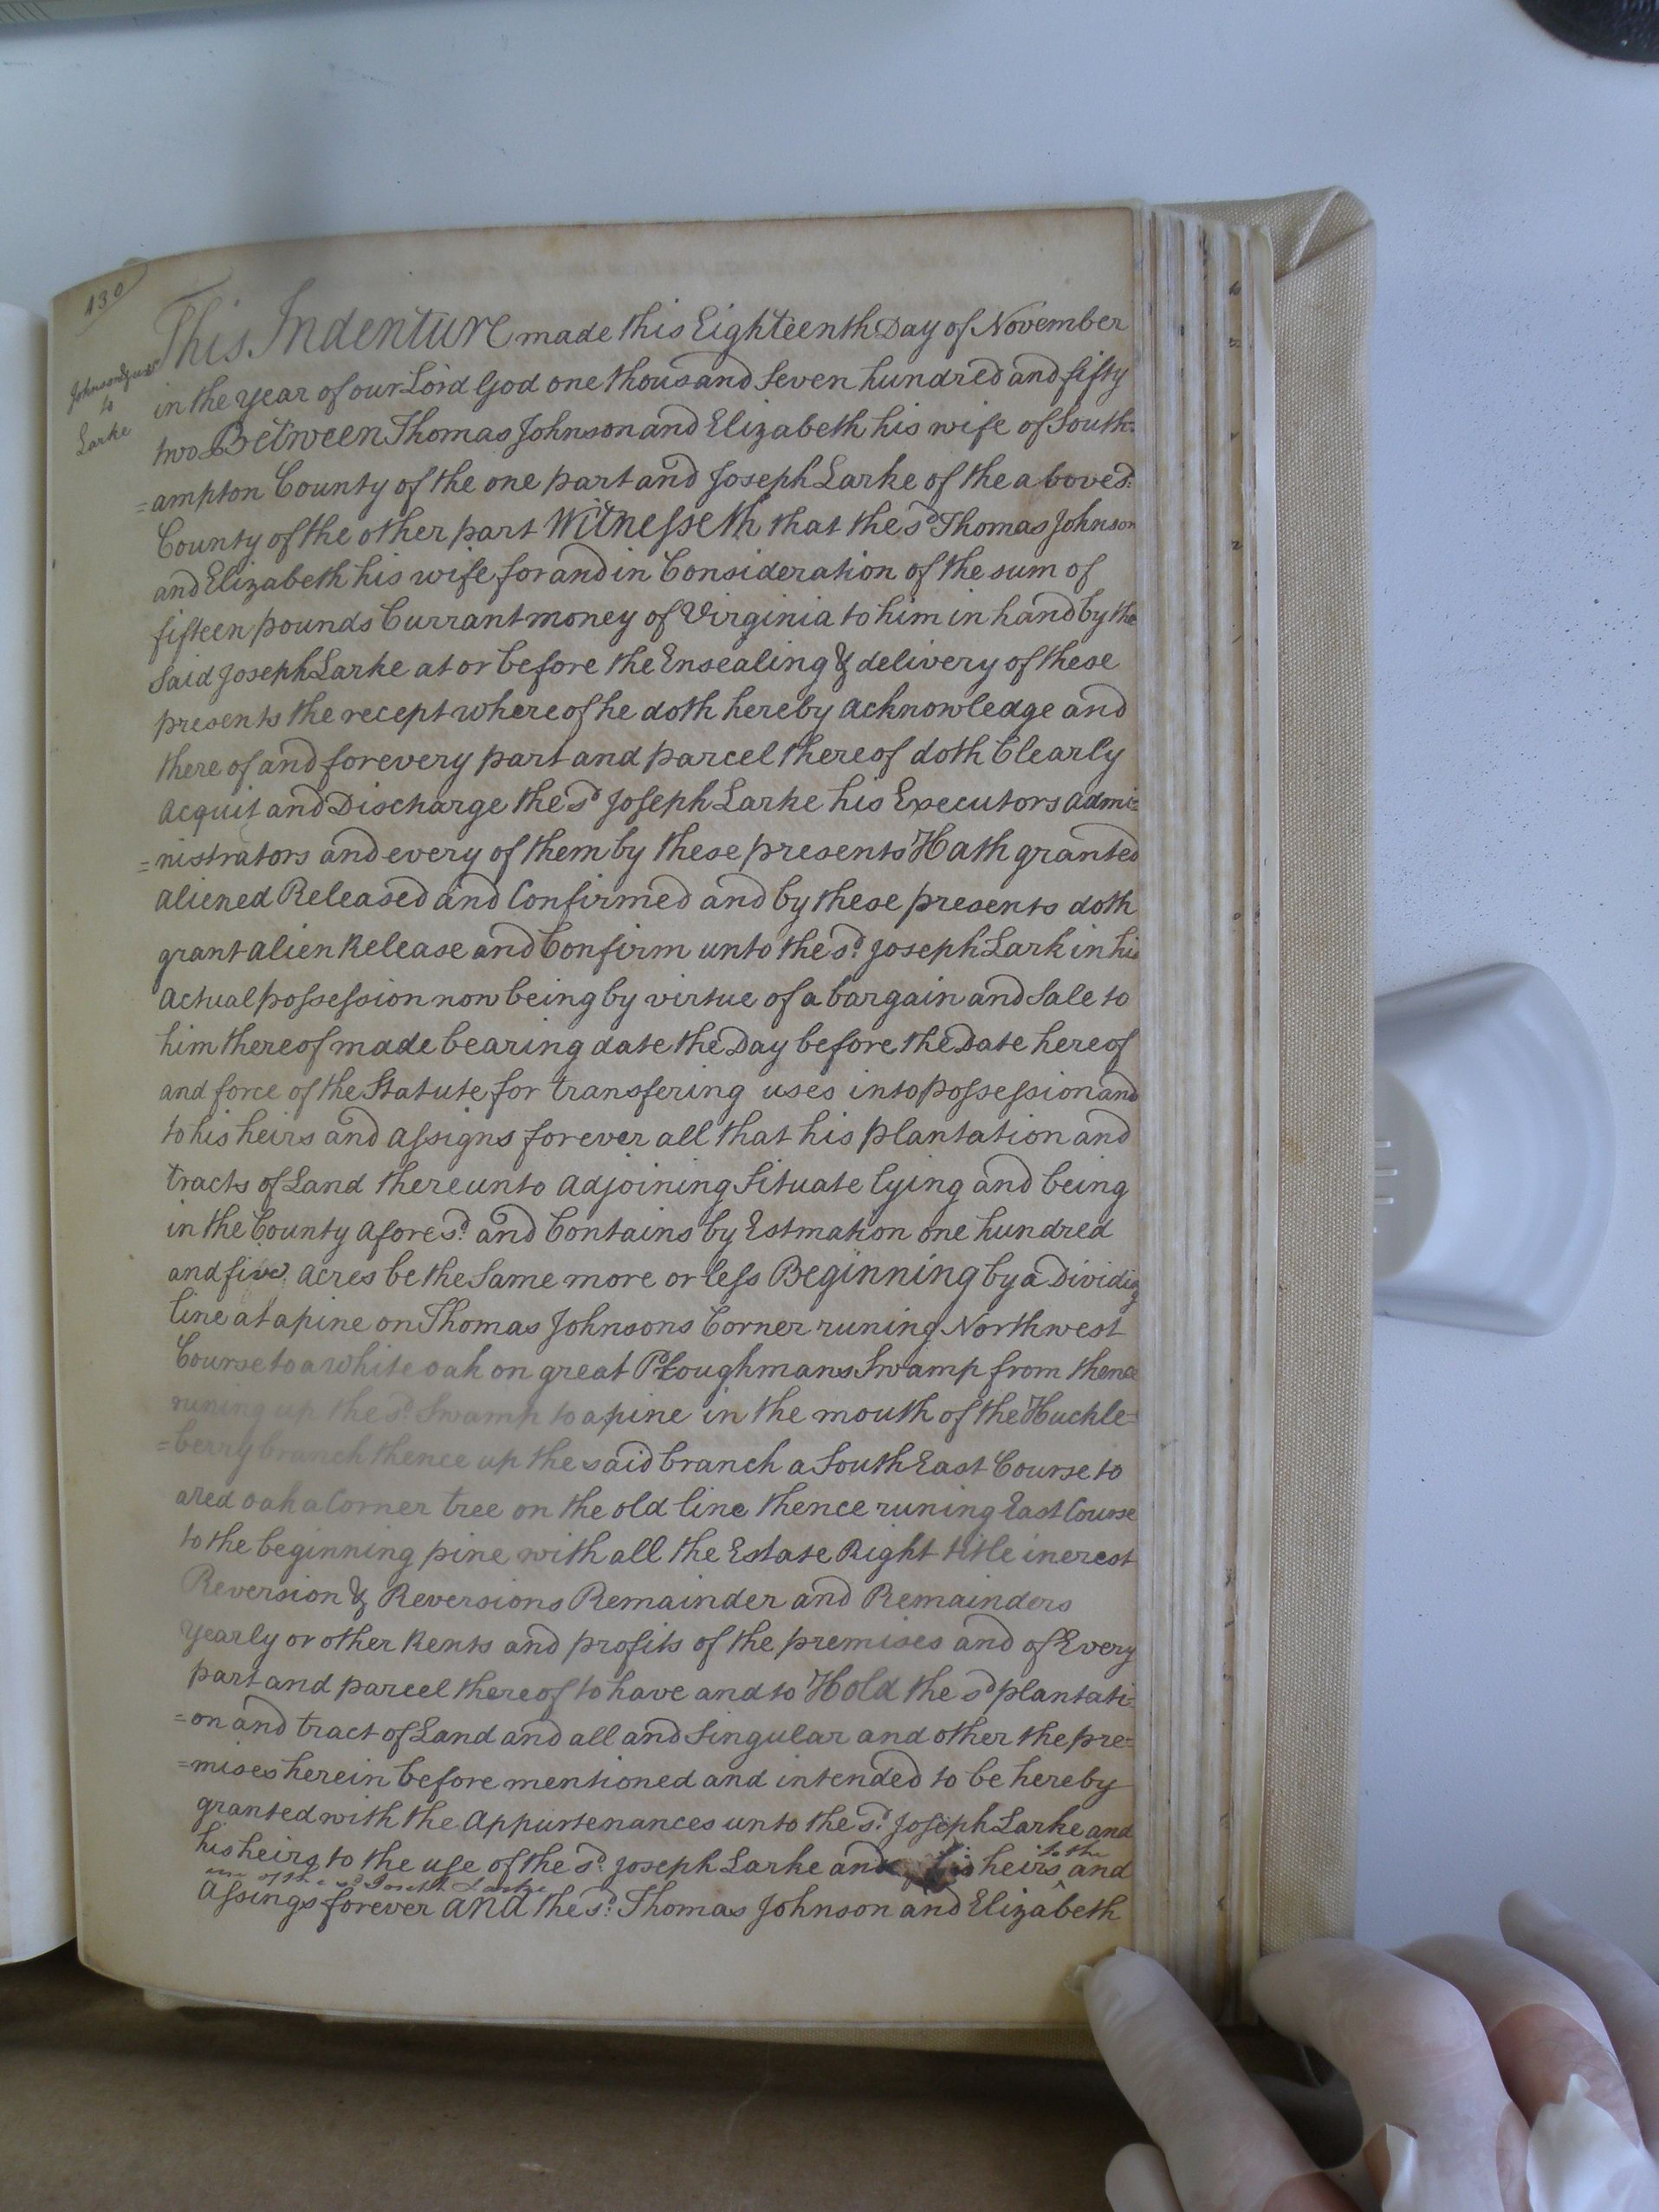 130
Johnson & uxr
to
Larke
This Indenture made this Eighteenth Day of November
in the year of our Lord God one thousand Seven hundred and fifty
two Between Thomas Johnson and Elizabeth his wife of South=
=ampton County of the one part and Joseph Larke of the above sd.
County of the other part Witnesseth that the sd Thomas Johnson
and Elizabeth his wife for and in Consideration of the sum of
fifteen pounds Currant money of Virginia to him in hand by the
Said Joseph Larke at or before the Ensealing & delivery of these
presents the recept whereof he doth hereby acknowledge and
there of and for every part and parcel thereof doth Clearly
acquit and Discharge the sd Joseph Larke his Executors admi=
=nistrators and every of them by these presents Hath granted
aliened Released and Confirmed and by these presents doth
grant alien Release and Confirm unto the sd. Joseph Lark in his
actual possession now being by virtue of a bargain and Sale to
him thereof made bearing date the Day before the Date hereof
and force of the Statute for transfering uses into possession and
to his heirs and assigns forever all that his plantation and
tracts of Land thereunto adjoining Situate lying and being
in the County afore sd. and Contains by Estmation one hundred
and five acres be the Same more or less Beginning by a Dividig
line at a pine on Thomas Johnsons Corner runing Northwest
Course to a white oak on great Ploughmans Swamp from thence
runing up the sd. Swamp to a pine in the mouth of the Huckle=
=berry branch thence up the said branch a South East Course to
a red oak a Corner tree on the old line thence runing East Course
to the beginning pine with all the Estate Right title inerest
Reversion & Reversions Remainder and Remainders
yearly or other Rents and profits of the premises and of Every
part and parcel thereof to have and to Hold the sd plantati=
=on and tract of Land and all and Singular and other the pre=
=mises herein before mentioned and intended to be hereby
granted with the Appurtenances unto the sd. Joseph Larke and
his heirs to the use of the sd. Joseph Larke and his heirs ^ to the and
use of the sd Joseph Larke
Assings forever and the sd. Thomas Johnson and Elizabeth